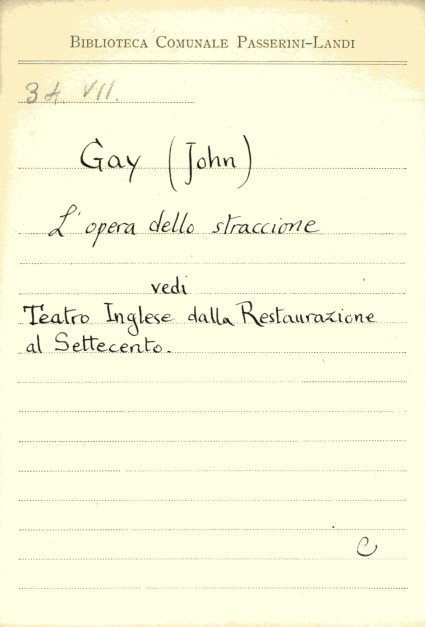 BIBLIOTECA COMUNALE PASSERINI-LANDI
34. VII.
Gay (John)
L'opera dello straccione
vedi
Teatro Inglese dalla Restaurazione
al Settecento.
C